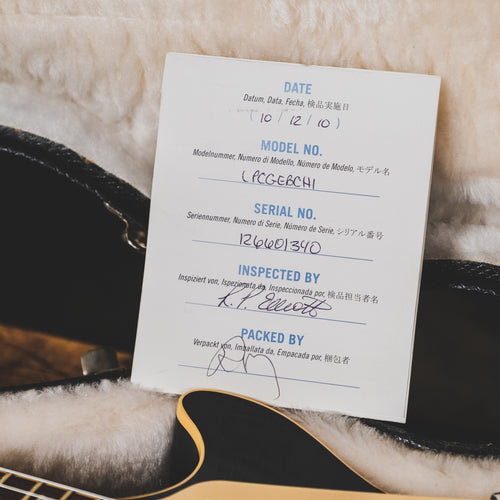 DATE
Datum, Data, Fecha, 検品実施日
(10 / 12 / 10)
MODEL NO.
Modelnummer, Numero di Modello, Número de Modelo, モデル名
LPCGEBCH1
SERIAL NO.
Seriennummer, Numero di Serie, Número de Serie, シリアル番号
126601340
INSPECTED BY
Inspiziert von, Ispezionata da, Inspeccionada por, 検品担当者名
PACKED BY
Verpackt von, Imballata da, Empacada por, 梱包者